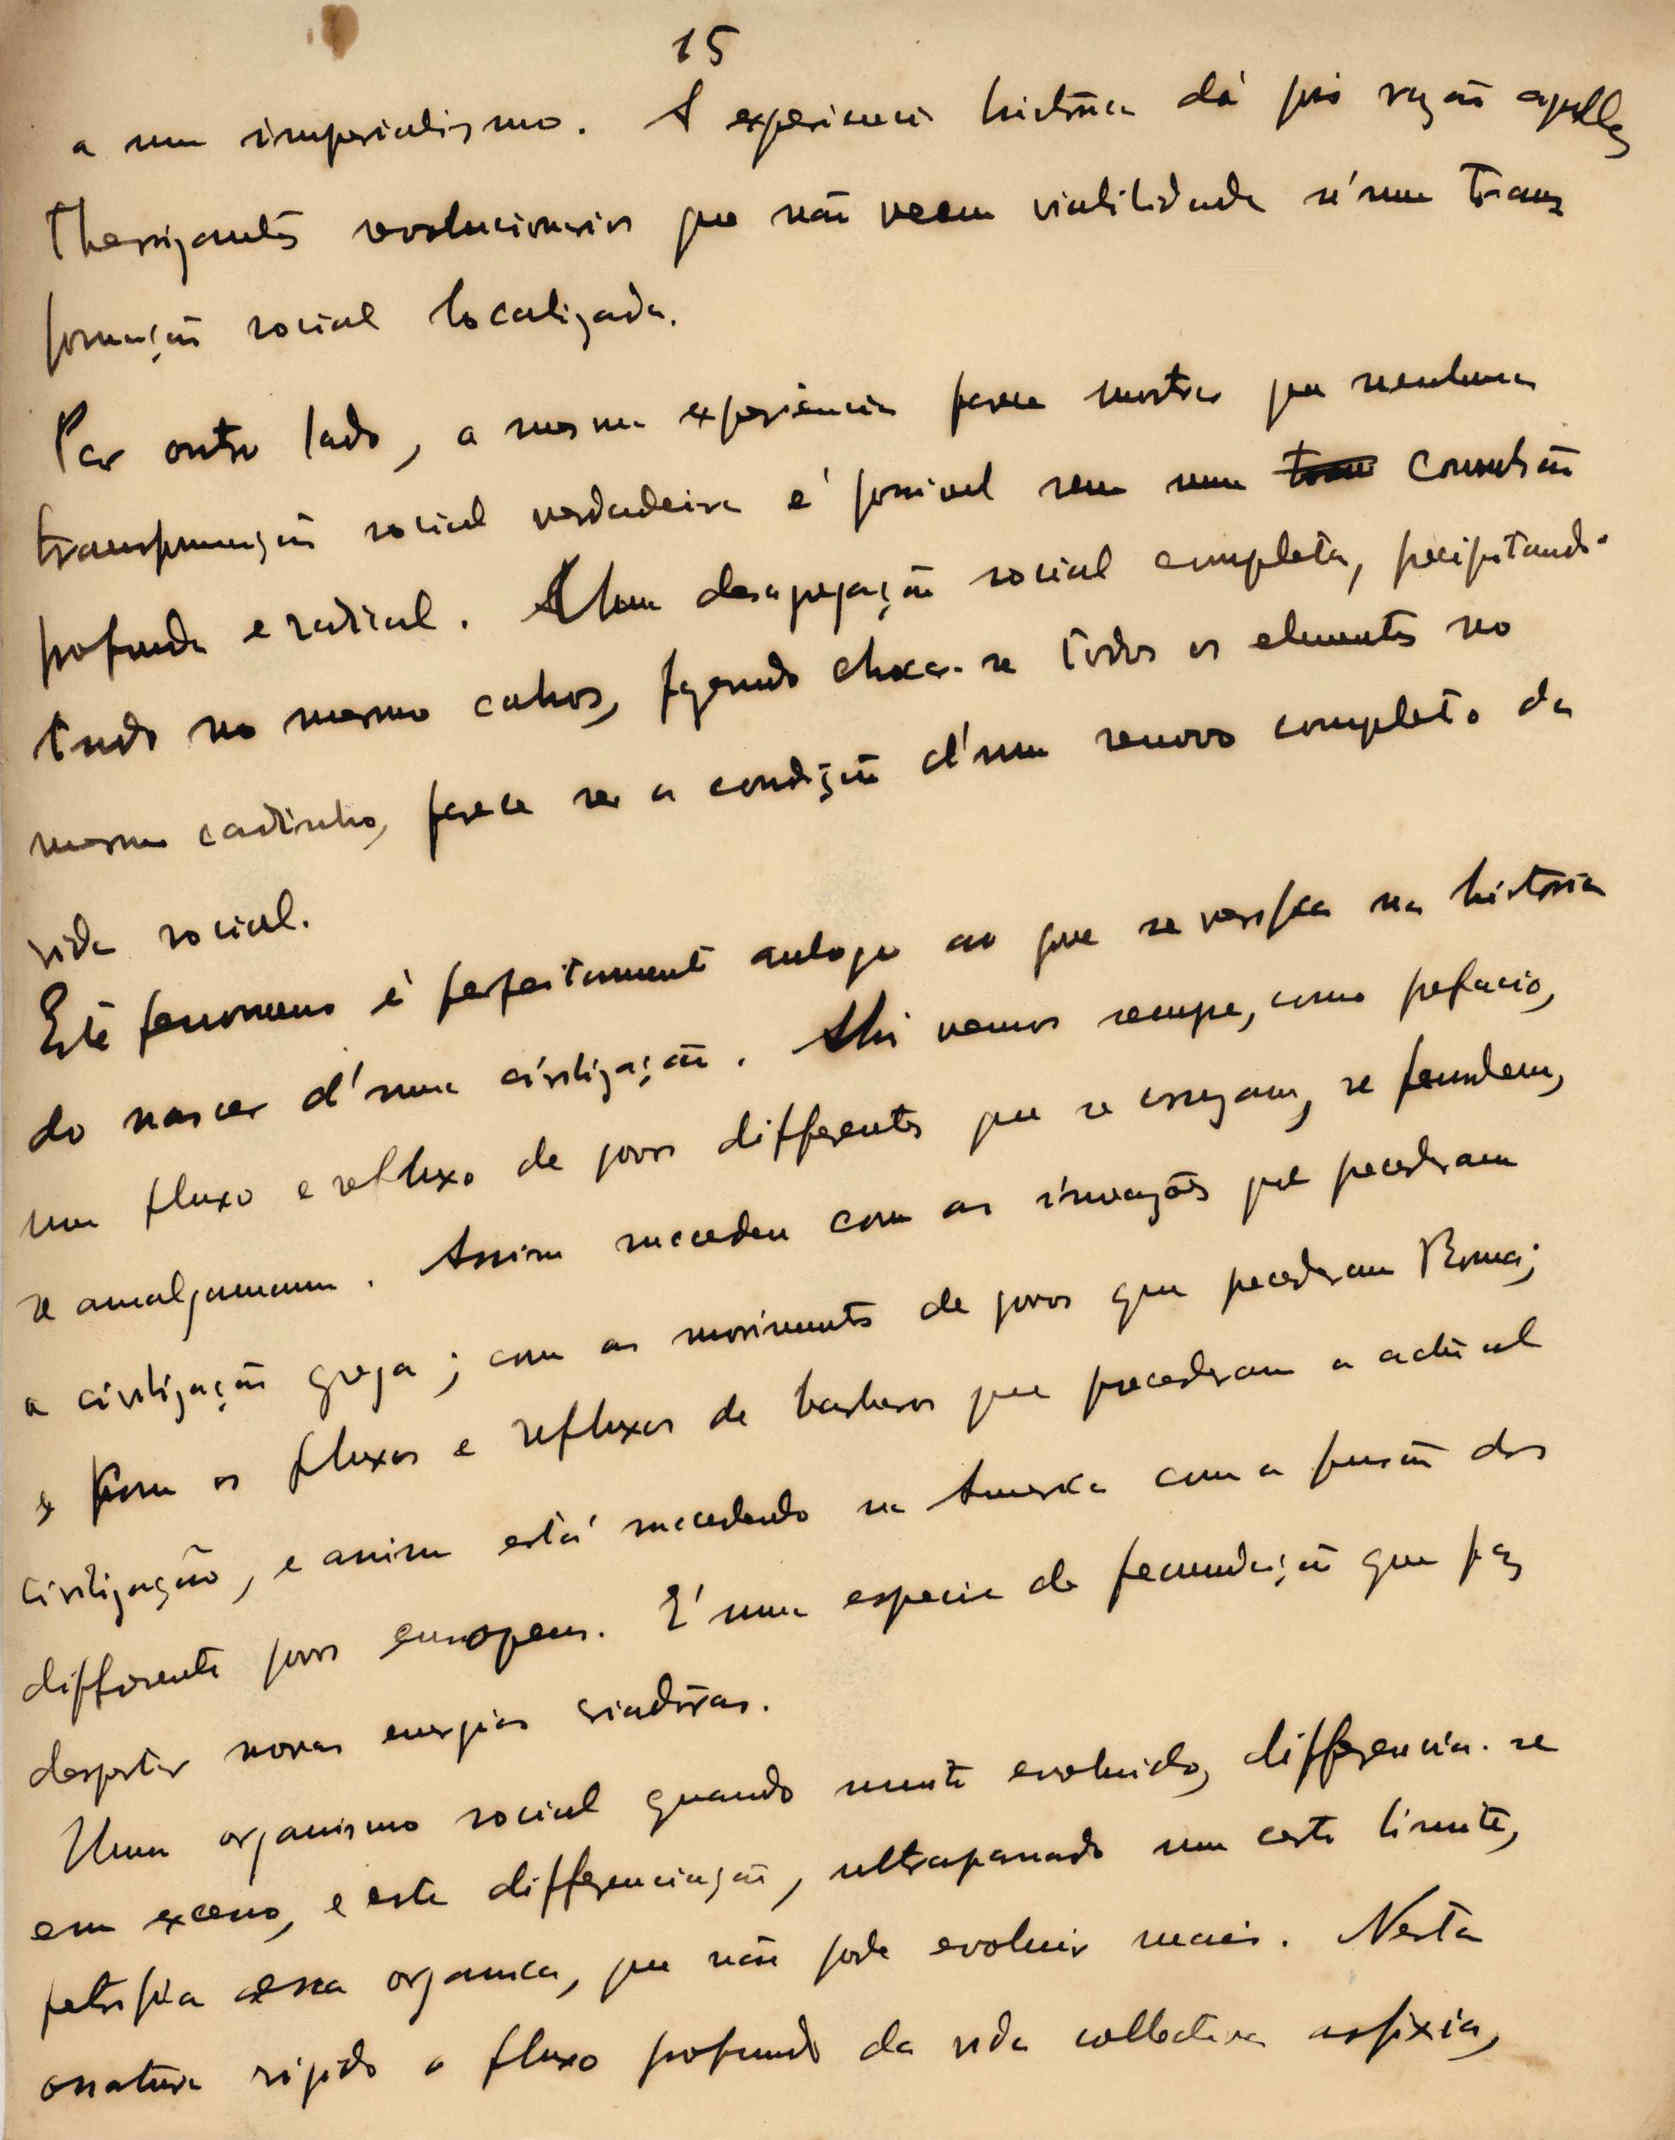 15
a um imperialismo. A experiencia historica dá pois razão aquelles
theorizantes revolucionarios que não veem viabilidade n'uma trans
formação social localizada.
Por outro lado, a mesma experiencia parece mostrar que nenhuma
transformação social verdadeira é possivel sem uma convulsão
profunda e radical. Uma desagregação social completa, precipitando
tudo no mesmo cahos, fazendo chocar-se todos os elementos no
mesmo cadinho, parece ser a condição d'um renovo completo da
vida social.
Este fenomeno é perfeitamente analogo ao que se verifica na historia
do nascer d'uma civilização. Ahi vemos sempre, como prefacio,
um fluxo e refluxo de povos differentes que se, se fundem,
se amalgamam. Assim succedeu com as invazões que precederam
a civilização grega; com os movimentos de povos que precederam Roma;
e com os fluxos e refluxos de barbaros que precederam a actual
civilização, e assim está succedendo na America com a fusão dos
differentes povos europeus. É uma especie de fecundação que faz
despertar novas energias criadoras.
Um organismo social quando muito evoluido, differencia-se
em excesso, e esta differenciação, ultrapassado um certo limite,
petrifica a organica, que não pode evoluir mais. Nesta
ossatura rigida o fluxo profundo da vida collectiva asfixia,